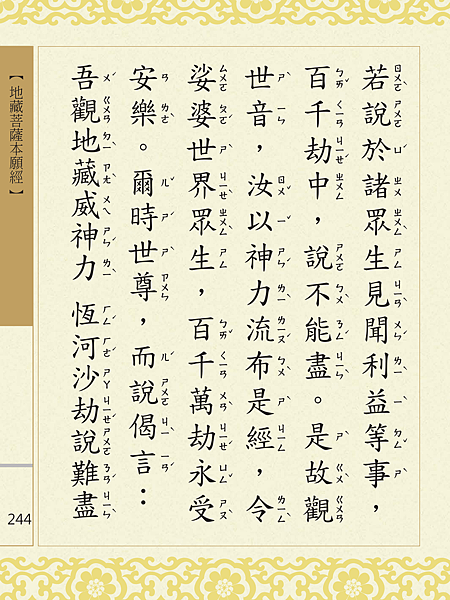 若說於諸眾生見聞利益等事，
百千劫中，說不能盡。是故觀
世音，汝以神力流布是經，令
娑婆世界眾生，百千萬劫永受
安樂。爾時世尊，而說偈言：
吾觀地藏威神力　恆河沙劫說難盡
【地藏菩薩本願經】
244